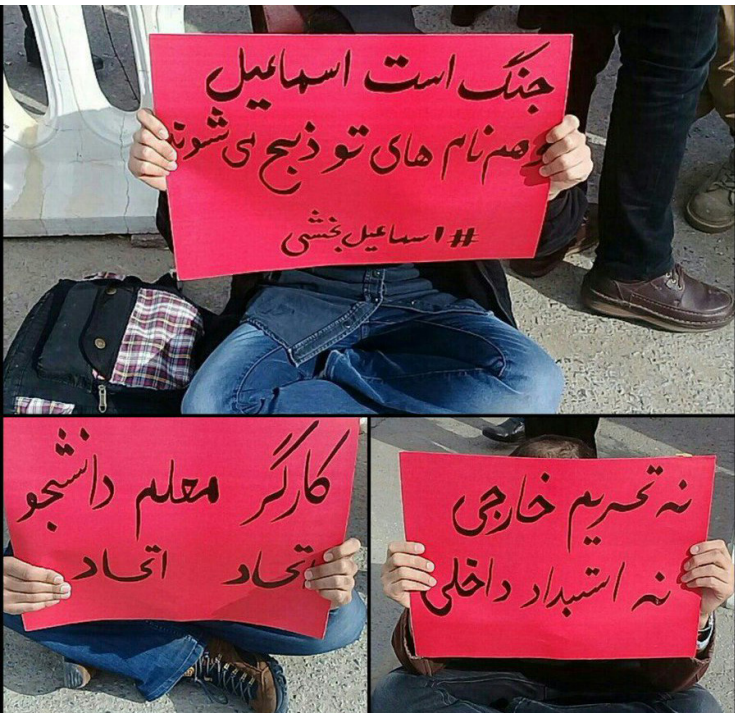 جنگ است اسماعیل
و هم نام های تو ذبح می شوند
#اسماعیل بخشی
کارگر معلم دانشجو
اتحاد اتحاد
نه تحریم خارجی
نه استبداد داخلی